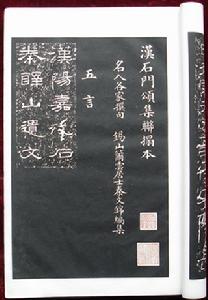 漢石門頌集聯搨本
名人各家撰句　錫山爾雲居士秦文錦編集
五言
漢陽嘉殘石
秦嶧山遺文